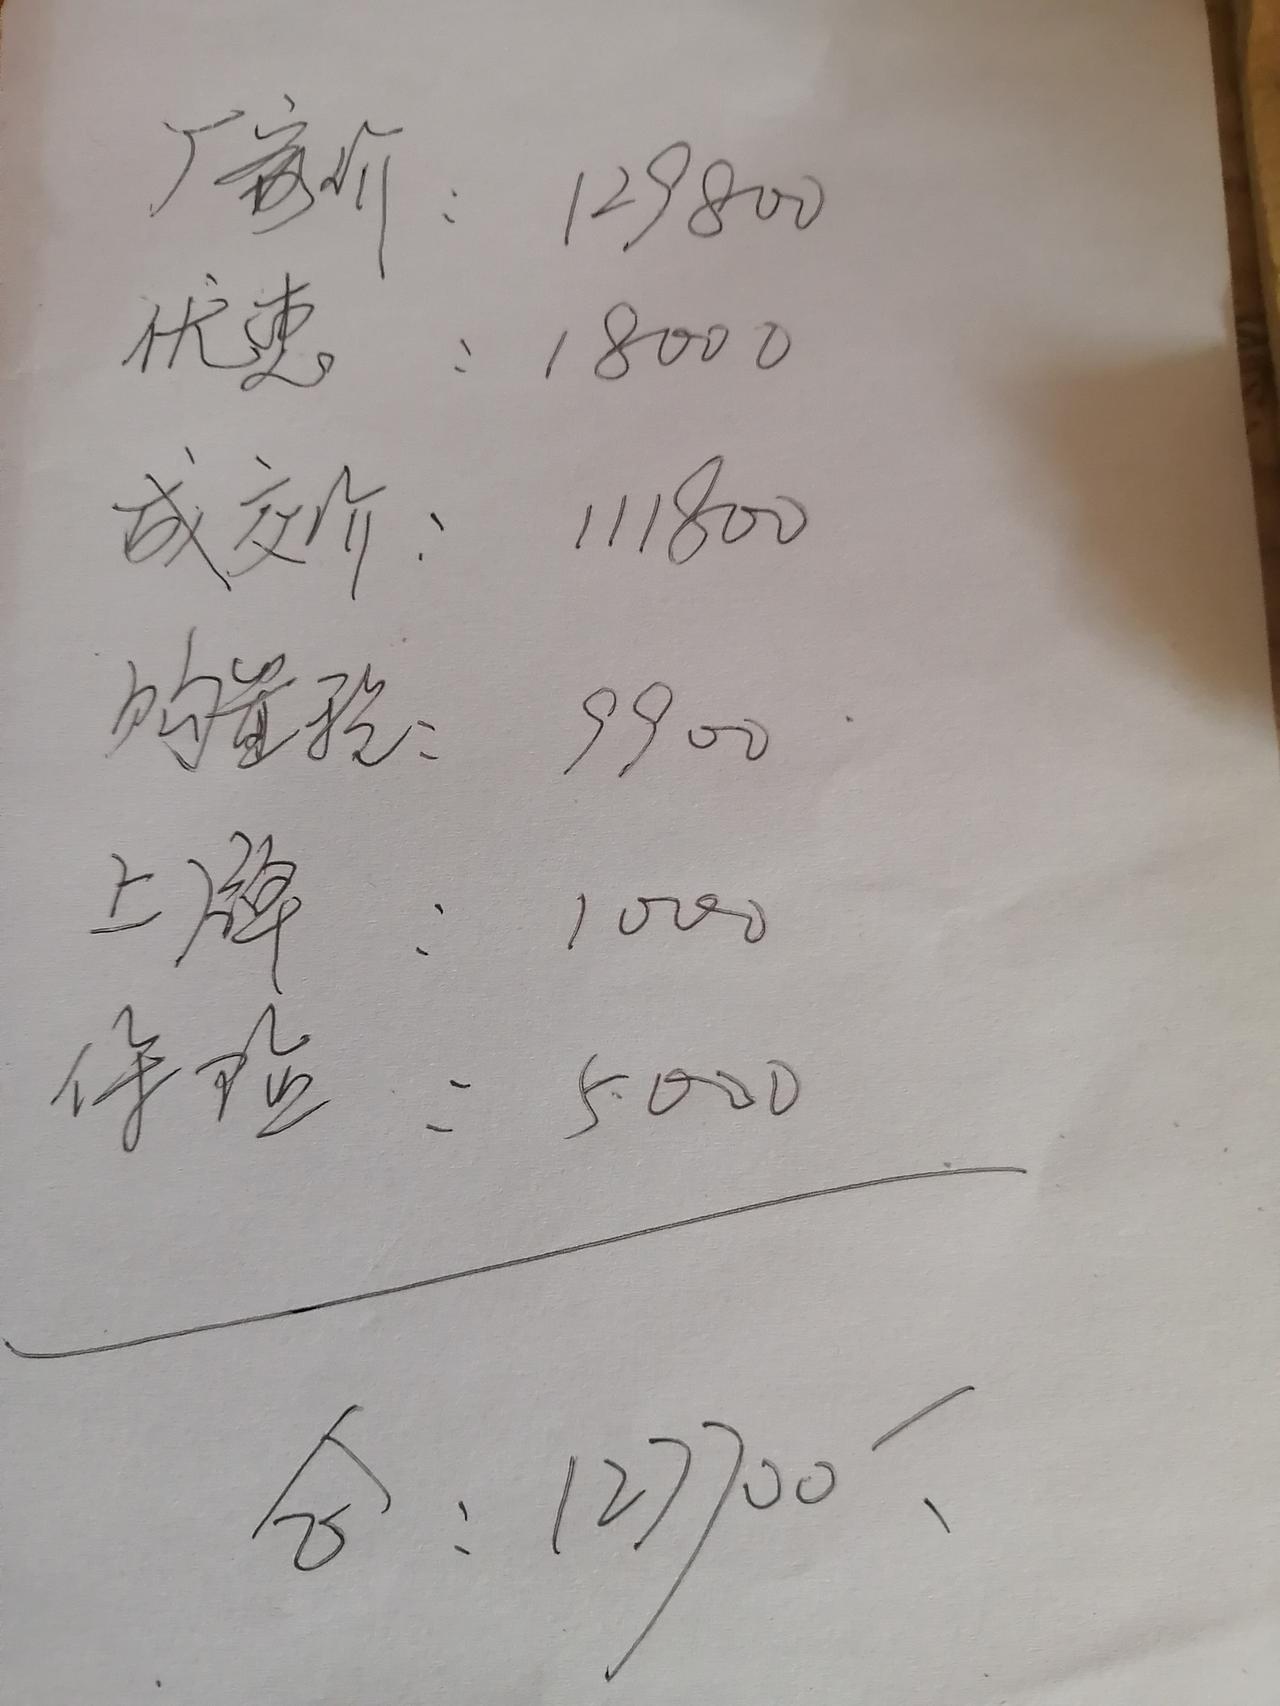 厂家价：129800
优惠：18000
成交价：111800
购置税：9900
上牌：1000
保险：5000
合：127700